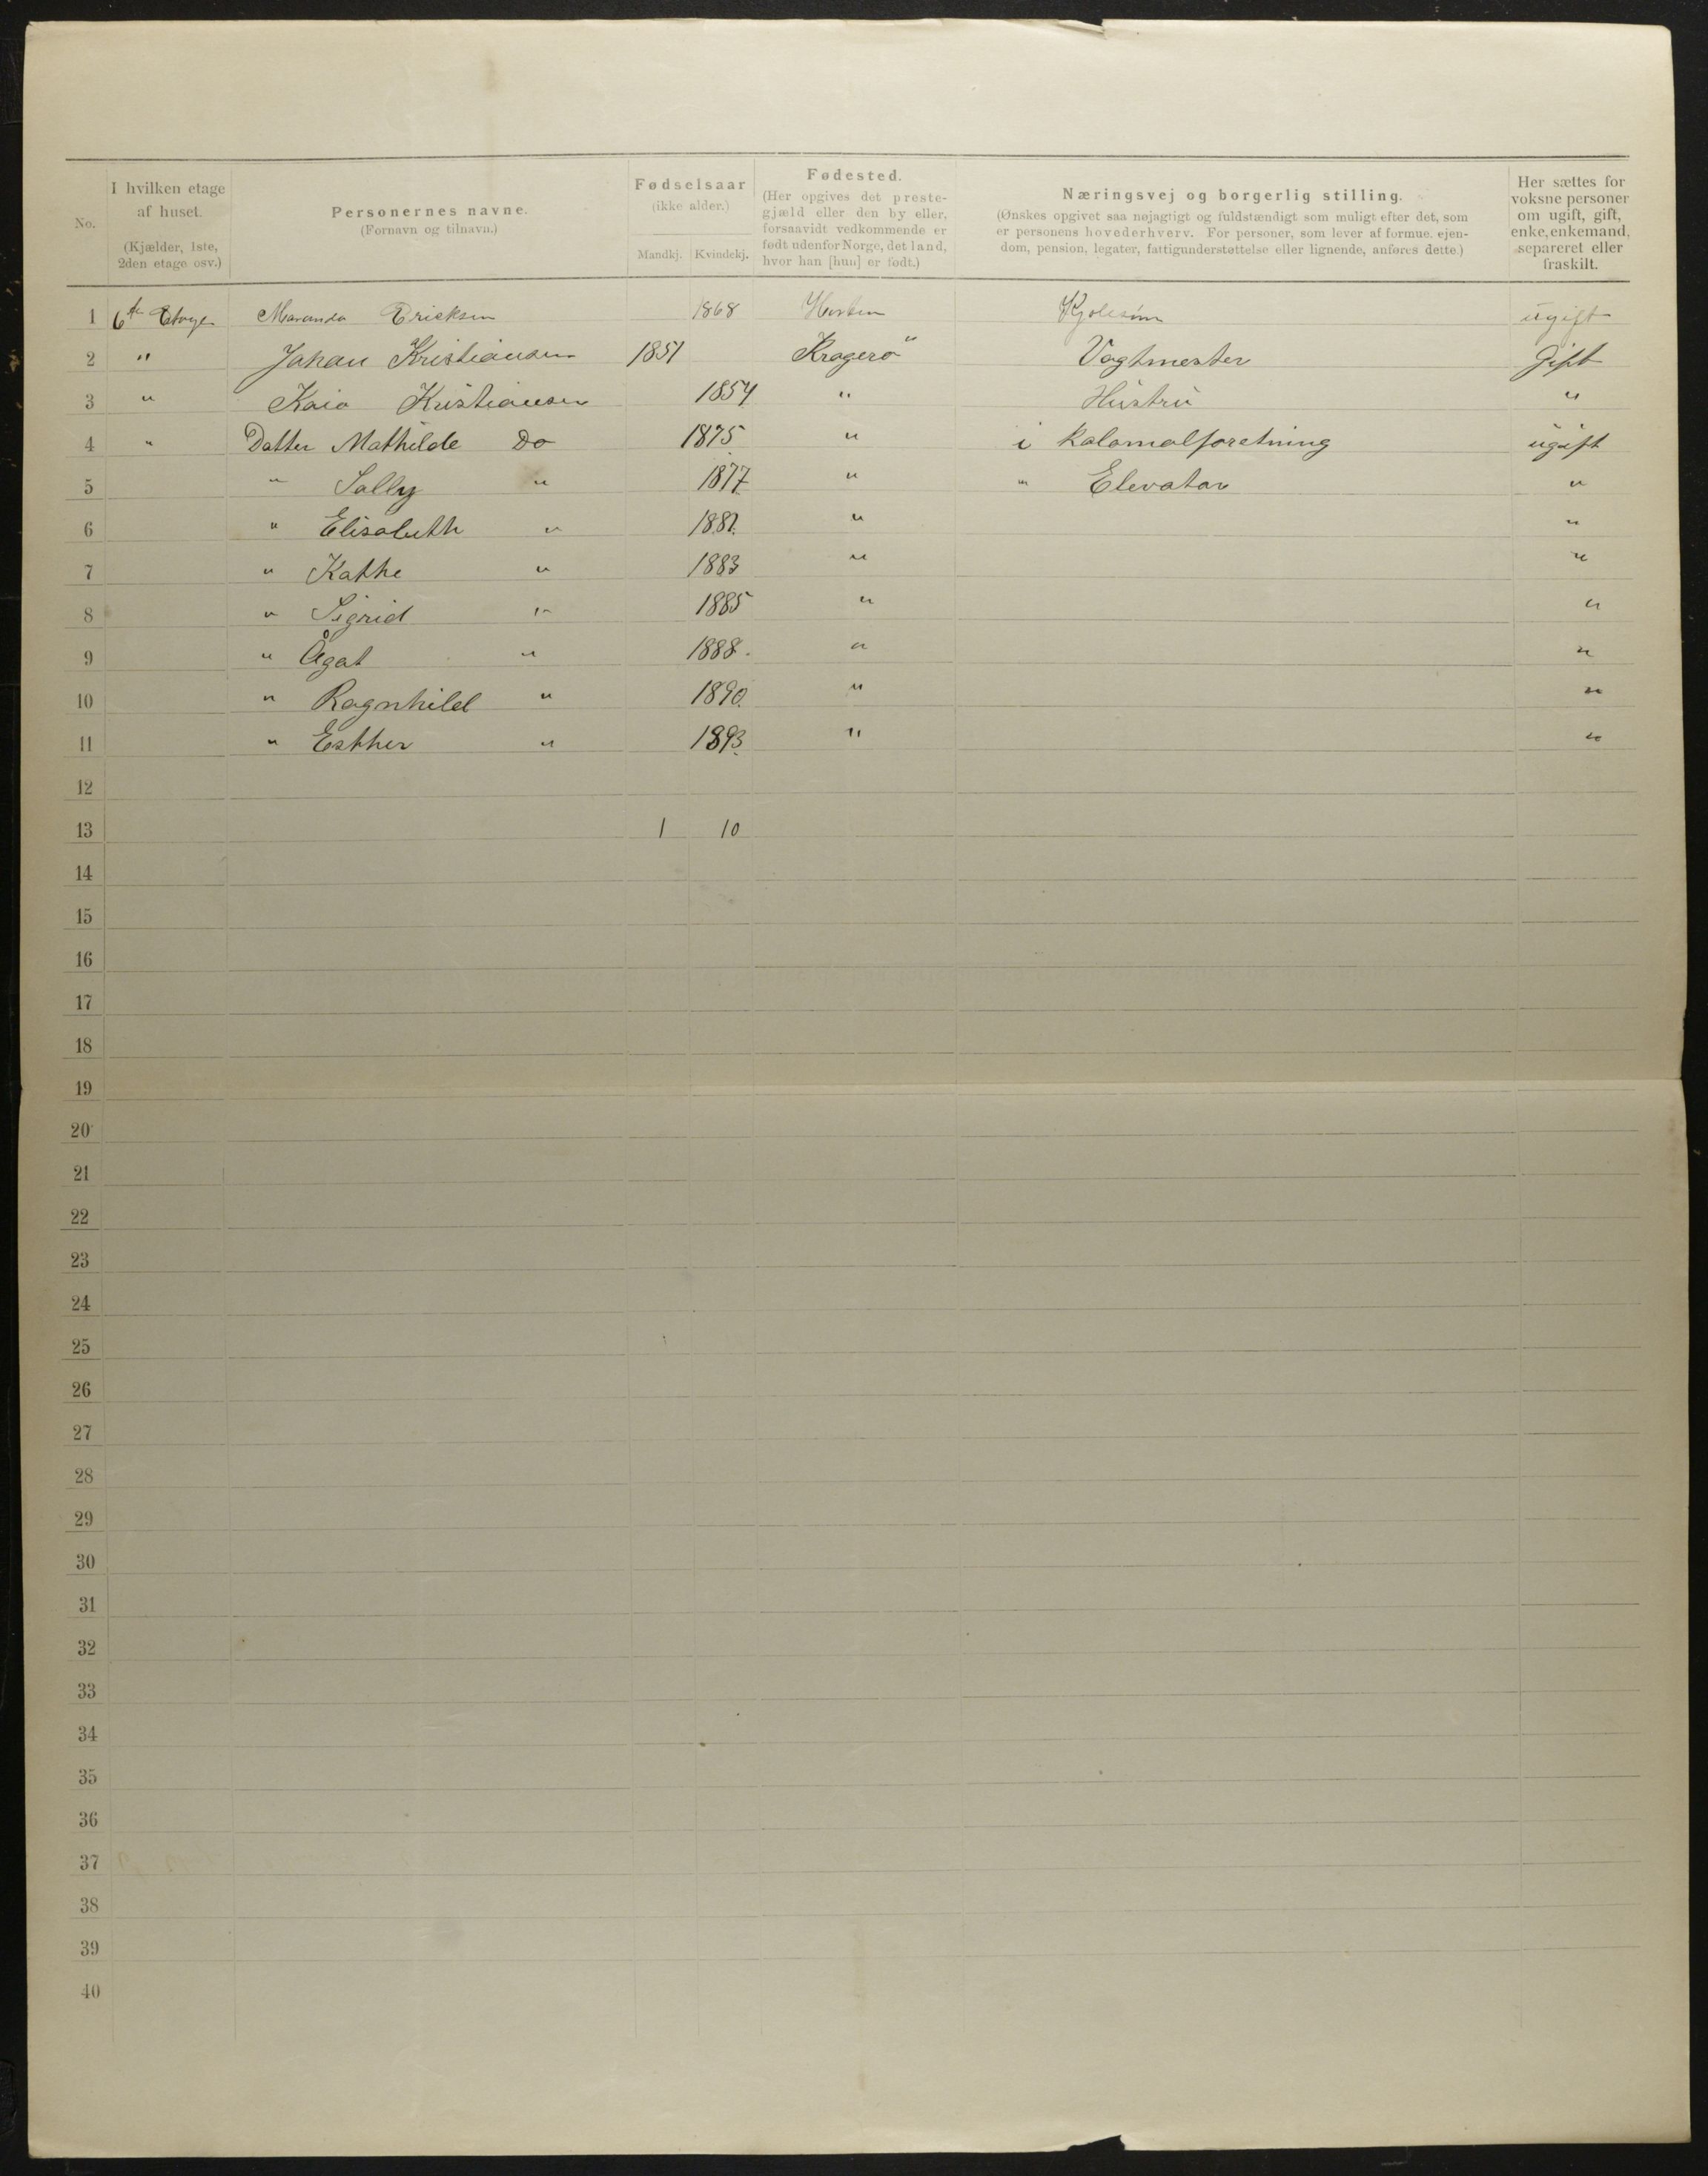 No.
I hvilken etage
af huset.
(Kjælder, 1ste,
2den etage osv.)
Personernes navne.
(Fornavn og tilnavn.)
Fødselsaar
(ikke alder.)
Mandkj. Kvindekj.
Fødested.
(Her opgives det preste-
gjæld eller den by eller,
forsaavidt vedkommende er
født udenfor Norge, det land,
hvor han [hun] er født.)
Næringsvej og borgerlig stilling.
(Ønskes opgivet saa nøjagtigt og fuldstændigt som muligt efter det, som
er personens hovederhverv. For personer, som lever af formue, ejen-
dom, pension, legater, fattigunderstøttelse eller lignende, anføres dette.)
Her sættes for
voksne personer
om ugift, gift,
enke, enkemand,
separeret eller
fraskilt.
1 6te Etage Maranda Ericksen 1868 Horten ugift
2 " Johan Kristiansen 1851 Kragerö Vagtmester Gift
3 " Kaia Kristiansen 1854 " Hustru "
4 " Datter Mathilde Do 1875 " i Kolonialforetning ugift
5 " Sally " 1877 " " Elevatar "
6 " Elisabeth " 1881. " "
7 " Kathe " 1883 " "
8 " Sigrid " 1885 " "
9 " Ågat " 1888. " "
10 " Ragnhild " 1890. " "
11 " Esther " 1893. " "
12
13 1 10
14
15
16
17
18
19
20
21
22
23
24
25
26
27
28
29
30
31
32
33
34
35
36
37
38
39
40